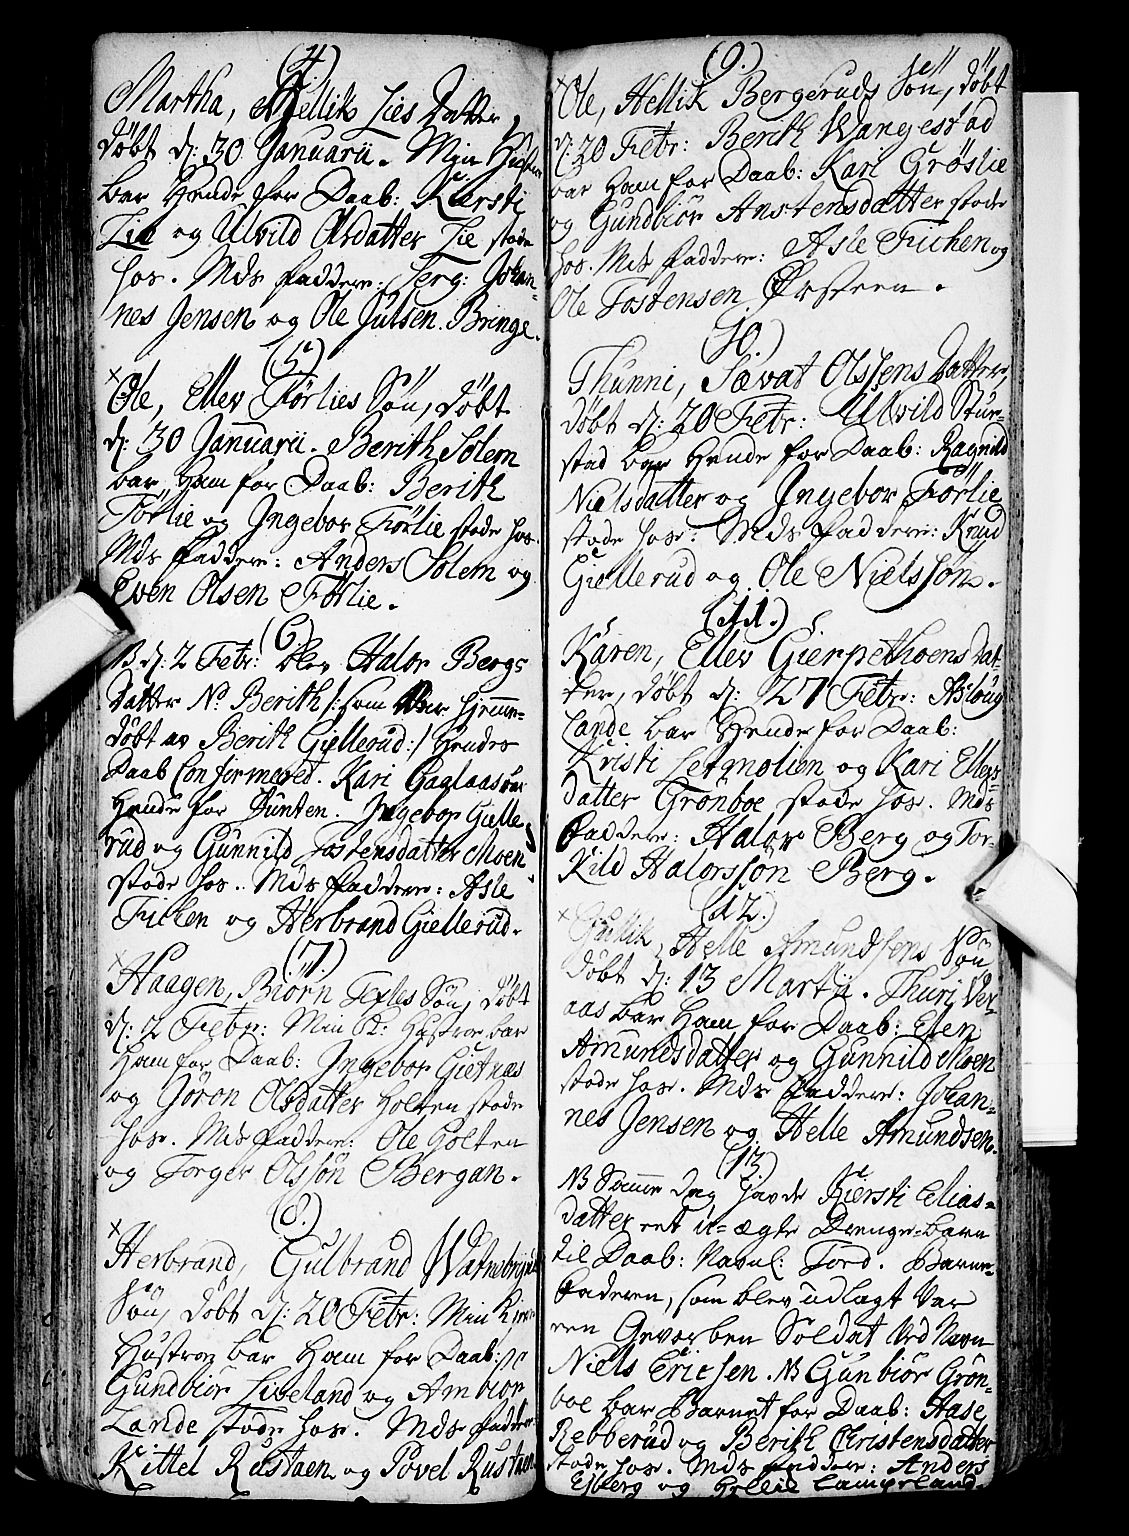 (4.)
Martha, Hellik Lies Datter,
døbt d: 30 Januarii. Min Hustru
bar Hende for Daab: Kirsti
Lie og Ulvild Olsdatter Lie stode
hos. Mds faddere: Serg: Johan-
nes Jensen og Ole Julsen Bringe.
(5.)
× Ole, Ellev Førlies Søn, døbt
d: 30 Januarii. Berith Solem
bar Ham for Daab: Berith
Førlie og Ingebor Førlie stode hos.
Mds faddere: Anders Solem og
Even Olsen Førlie.
(6.)
NB d: 2 Febr: blev Halor Bergs
Datter N: Berith /: som var hjemme-
døbt av Berith Giellerud :/ Hendes
Daab Confirmeret. Kari Gaglaas bar
Hende for Funten. Ingebor Gielle-
rud og Gunnild Tostensdatter Moen
stode hos. Mds faddere: Asle
Ficken og Herbrand Giellerud.
(7.)
× Haagen, Biørn Søn, døbt
d: 2 Febr: Min K: Hustroe bar
Ham for Daab: Ingebor Gietnæs
og Jøron Olsdatter Holten stode
hos. Mds faddere: Ole Holten
og Torger Olssøn Bergan.
(8.)
× Herbrand, Gulbrand
Søn, døbt d: 20 Febr: Min Kjere
Hustroe bar Ham for Daab:
Gundbior Liveland og Ambior
Lande stode hos. Mds faddere:
Kittel Rustaen og Povel Rustaen
(9.)
× Ole, Hellik Bergeruds Søn, døbt
d: 20 Febr: Berith Wangestad
bar Ham for Daab: Kari Grøslie
og Gundbiør Anstensdatter stode
hos. Mds faddere: Asle Ficken og
Ole Tostensen Ørsteen.
(10.)
Thunni, Sævat Olssens Datter,
døbt d: 20 Febr: Ulvild Stue-
stad bar Hende for Daab: Ragnild
Nielsdatter og Ingebor Førlie
stode hos: Mds faddere: Knud
Giellerud og Ole Nielssøn.
(11.)
Karen, Ellev Gierpethoens Dat-
ter, døbt d: 27 Febr: Aslaug
Lande bar Hende for Daab:
Kristi Letmolien og Kari Ellevs-
datter Grønboe stode hos. Mds
faddere: Halor Berg og Tor-
kild Halorssøn Berg.
(12.)
× Gullik, Helle Amundsens Søn
døbt d: 13 Martii. Thuri Ver-
aas bar Ham for Daab: Elen
Amundsdatter og Gunnild Moen
stode hos. Mds faddere: Johan-
nes Jensen og Helle Amundsen.
(13.)
NB Samme dag havde Kiersti Elias-
datter eet u-ægte Drenge-barn
til Daab: Navnl: Tord. Barne-
faderen, som blev udlagt var
een Gevorben Soldat ved Navn
Niels Ericsen. NB Gunbiør Grøn-
boe bar Barnet for Daab: Aase
Rebberud og Berith Christensdatter
stode hos. Mds faddere: Anders
Esberg og